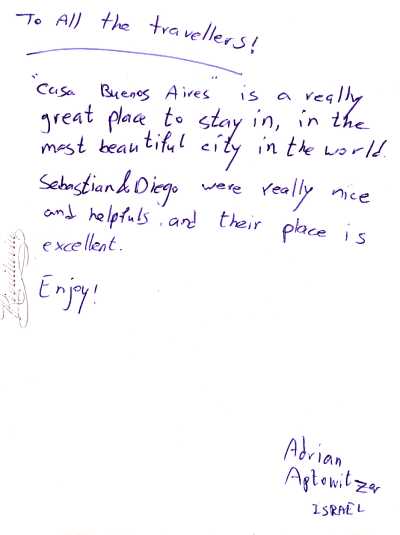 To All the travellers!
"Casa Buenos Aires" is a really
great place to stay in, in the
most beautiful city in the world.
Sebastian & Diego were really nice
and helpfuls and their place is
excellent.
Enjoy!
Adrian
Aptowitzer
ISRAEL